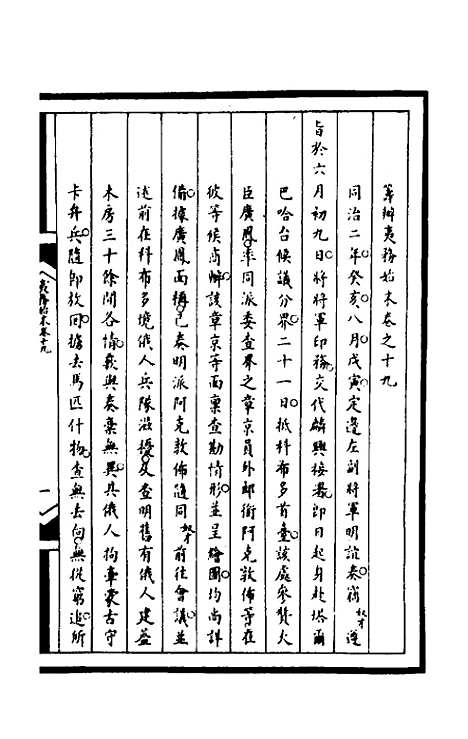 籌辦夷務始末卷之十九
同治二年癸亥八月戊寅定邊左副將軍明誼奏竊奴才遵
旨於六月初九日將將軍印務交代麟興接署即日起身赴塔爾
巴哈台候議分界二十一日抵科布多首臺該處參贊大
臣廣鳳率同派委查界之章京員外郎銜阿克敦佈等在
彼等候商辦該章京等面稟查勘情形並呈繪圖均尚詳
備據廣鳳面稱已奏明派阿克敦佈隨同奴才前往會議並
述前在科布多境俄人兵隊滋擾及查明舊有俄人建蓋
木房三十餘間各情義與奏稟無異其俄人拘牽蒙古守
卡弁兵隨即放回擄去馬匹什物查無去向無從窮追所
夷務始末卷十九
一